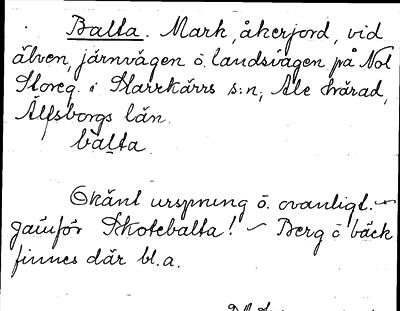 Balta. Mark, åkerjord, vid
älven, järnvägen ö. landsvägen på Nol
Storeg. i Starrkärrs s:n, Ale härad,
Älfsborgs län.
balta.
Okänt ursprung o. ovanligt. –
jämför Skotebalta! – Berg o bäck
finnes där bl.a.